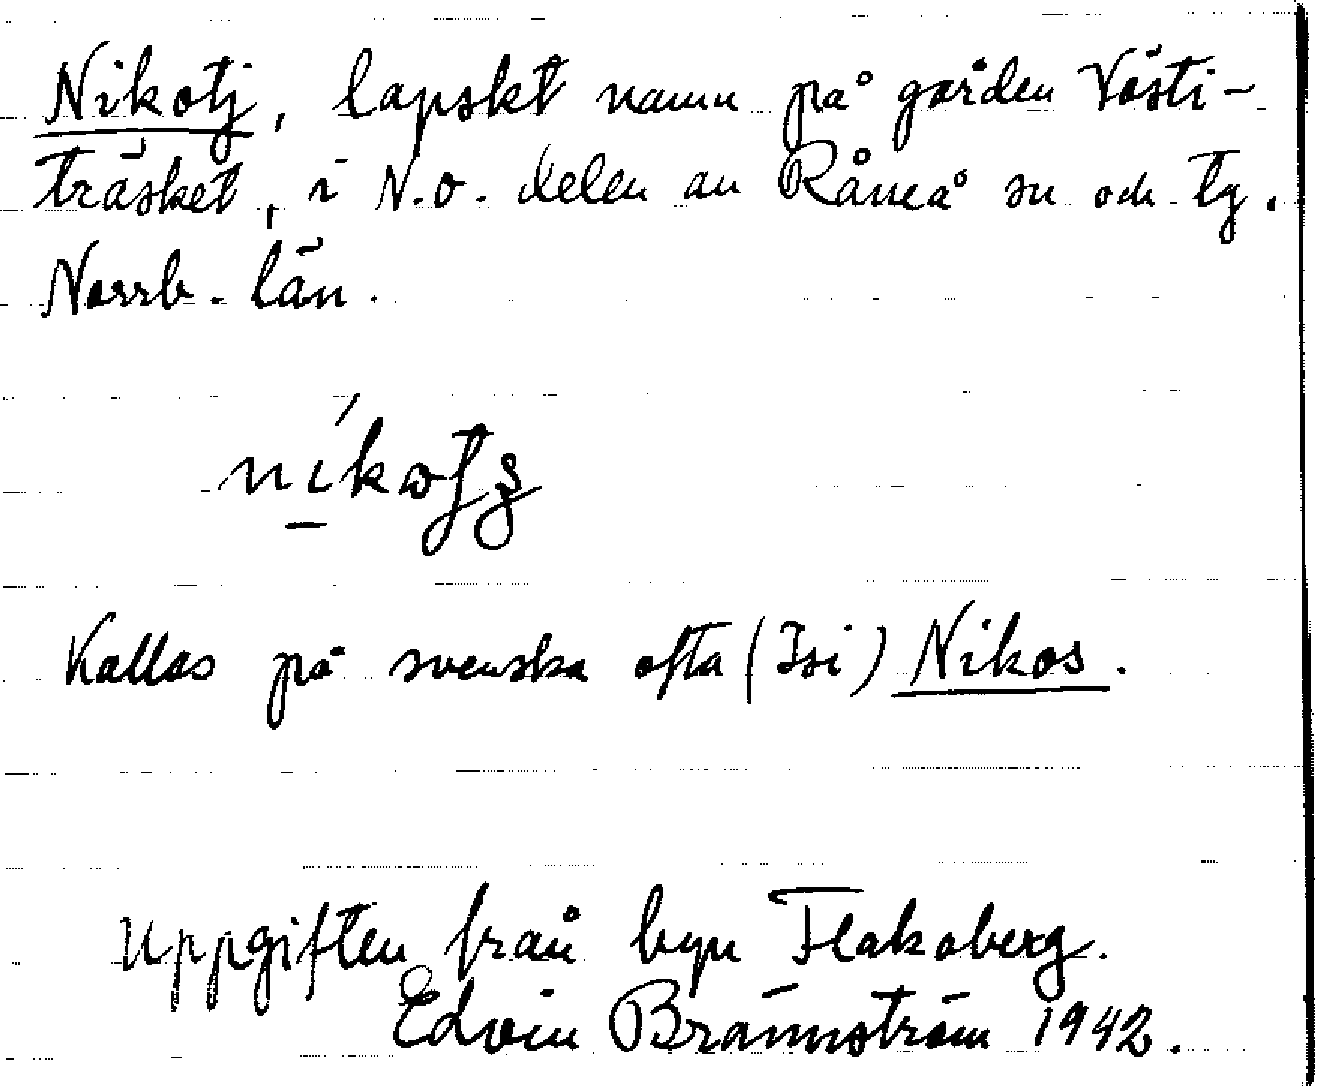 Nikotj, lapskt namn på gården Västi-
träsket, i N.O. delen av Råneå sn och tg.
Norrb. län.
Kallas på svenska ofta (Isi) Nikos.
Uppgiften från byn Flakaberg.
Edvin Brännström 1942.